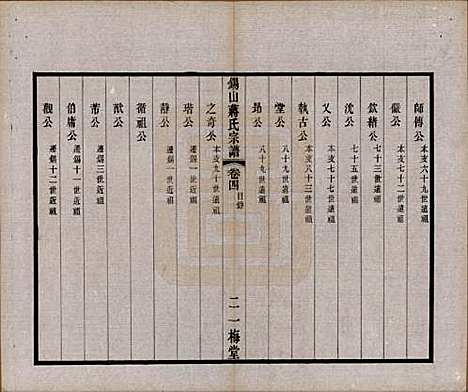 師傅公 本支六十九世遠祖
儼公 本支七十二世遠祖
欽緒公 七十三世遠祖
沈公 七十五世遠祖
又公 本支七十七世遠祖
執古公 本支八十三世遠祖
堂公 八十九世遠祖
昂公 八十九世遠祖
錫山蔣氏宗譜 卷四 目錄 二 一梅堂
之奇公 本支九十世遠祖
瑎公 遷錫一世近祖
靜公 遷錫二世近祖
循祖公
猷公
芾公 遷錫三世近祖
伯庸公 遷錫十一世近祖
觀公 遷錫十二世近祖